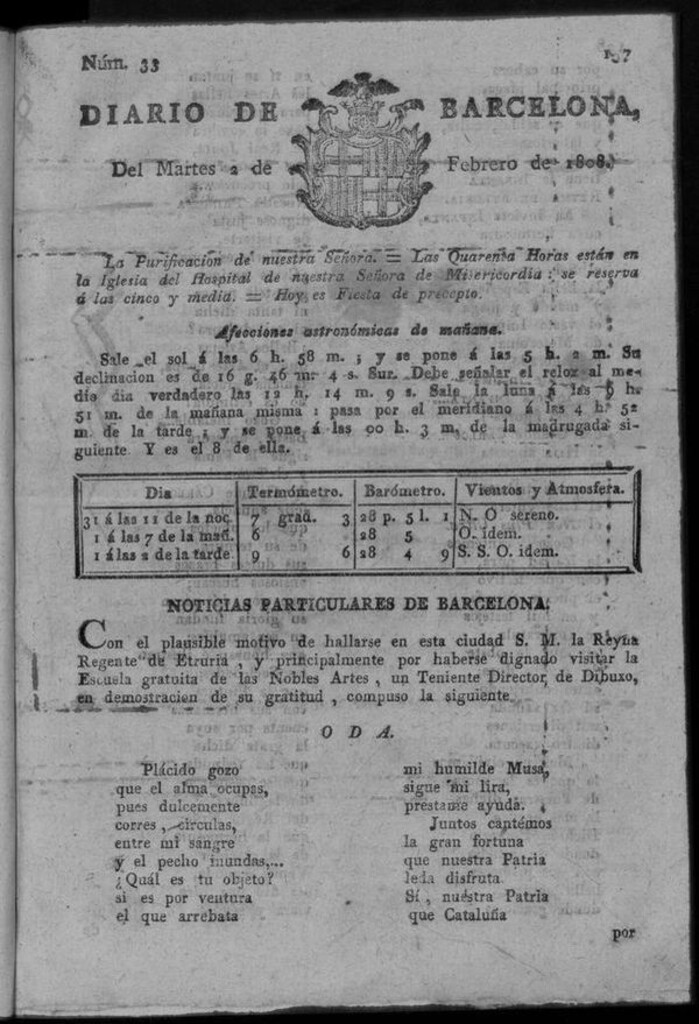 Núm. 33
DIARIO DE BARCELONA,
Del Martes 2 de Febrero de 1808.
La Purificacion de nuestra Señora. = Las Quarenta Horas están en
la Iglesia del Hospital de nuestra Señora de Misericordia: se reserva
á las cinco y media. = Hoy es Fiesta de precepto.
Afecciones astronómicas de mañana.
Sale el sol á las 6 h. 58 m. ; y se pone á las 5 h. 2 m. Su
declinacion es de 16 g. 46 m. 4 s. Sur. Debe señalar el relox al me-
dio dia verdadero las 12 h. 14 m. 9 s. Sale la luna á las 9 h.
51 m. de la mañana misma : pasa por el meridiano á las 4 h. 52
m. de la tarde ; y se pone á las 00 h. 3 m. de la madrugada si-
guiente. Y es el 8 de ella.
Dia Termómetro. Barómetro. Vientos y Atmosfera.
31 á las 11 de la noc. 7 grad. 3 28 p. 5 l. 1 N. O sereno.
1 á las 7 de la mañ. 6 28 5 O. idem.
1 á las 2 de la tarde. 9 6 28 4 9 S. S. O. idem.
NOTICIAS PARTICULARES DE BARCELONA.
Con el plausible motivo de hallarse en esta ciudad S. M. la Reyna
Regente de Etruria , y principalmente por haberse dignado visitar la
Escuela gratuita de las Nobles Artes , un Teniente Director de Dibuxo,
en demostracion de su gratitud , compuso la siguiente
ODA.
Plácido gozo
que el alma ocupas,
pues dulcemente
corres , circulas,
entre mi sangre
y el pecho inundas,...
¿Quál es tu objeto?
si es por ventura
el que arrebata
mi humilde Musa,
sigue mi lira,
prestame ayuda.
Juntos cantémos
la gran fortuna
que nuestra Patria
leda disfruta.
Sí , nuestra Patria
que Cataluña
por